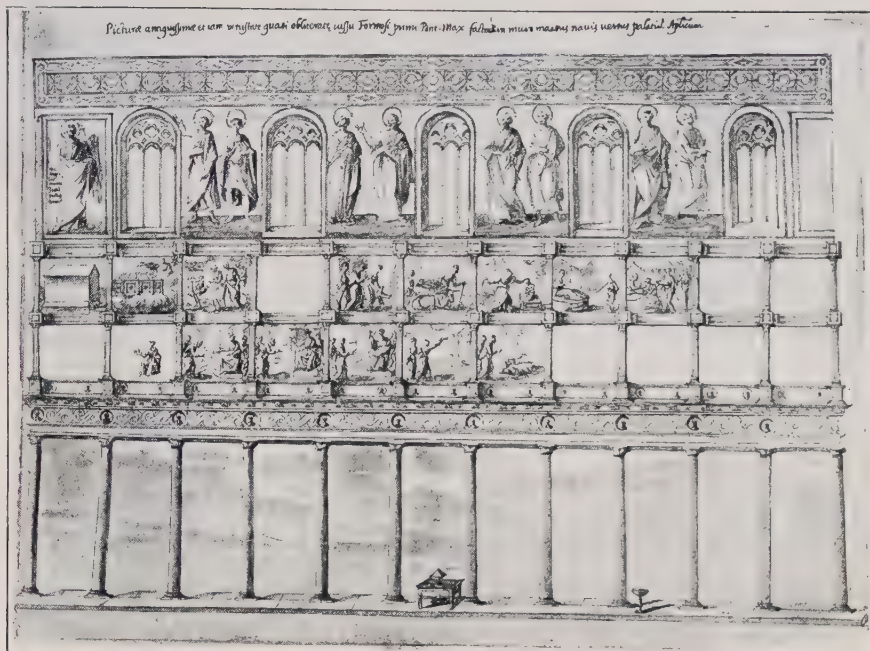 Picturæ antiquissimæ et iam vetustate quasi obliteratæ, iussu Formosi primi Pont. Max factæ in muro maestris navis versus palatiū Aplicum